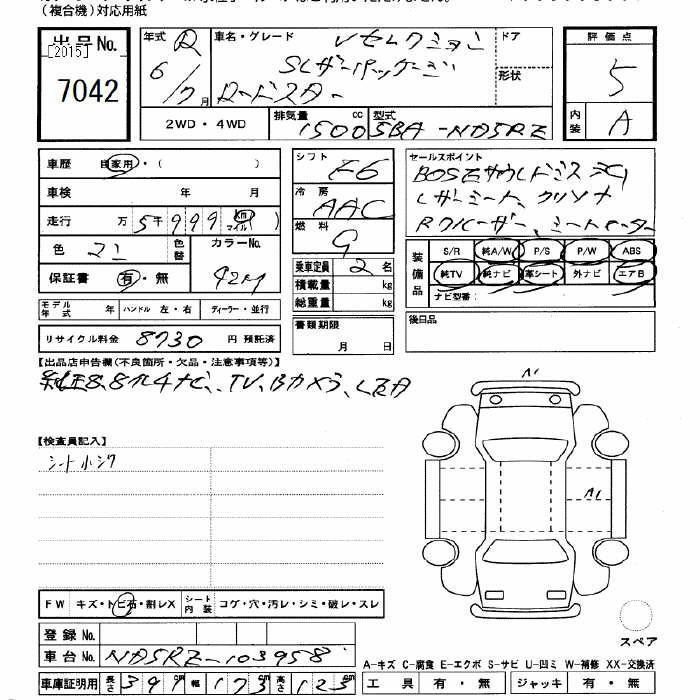 （複合機）対応用紙
出品No.
[2015]
7042
年式 R
6/7月
車名・グレード
Vセレクション
レザーパッケージ
ロードスター
ドア
形状
評価点
5
内装 A
2WD・4WD
排気量 1500 cc
型式 5BA-ND5RE
車歴 自家用・（ ）
車検 年 月
走行 万 5千999 km マイル（ ）
色 マシ 色替
カラーNo. 42M
保証書 有・無
モデル年式 年 ハンドル 左・右 ディーラー・並行
リサイクル料金 8730 円 預託済
シフト F6
冷房 AAC
燃料 G
乗車定員 2 名
積載量 kg
総重量 kg
書類期限
月 日
セールスポイント
レザーシート、
装備品
S/R 純A/W P/S P/W ABS
純TV 純ナビ 革シート 外ナビ エアB
ナビ型番：
後日品
【出品店申告欄（不良箇所・欠品・注意事項等）】
純正8.8インチナビ、TV、Bカメラ、LED
【検査員記入】
シート小シワ
A1
A1
FW キズ・トビ石・割レX シート内装 コゲ・穴・汚レ・シミ・破レ・スレ
登録No.
車台No. ND5RE-103958
車庫証明用 長さ 391 cm 幅 173 cm 高さ 123 cm
スペア
A-キズ C-腐食 E-エクボ S-サビ U-凹ミ W-補修 XX-交換済
工具 有・無 ジャッキ 有・無